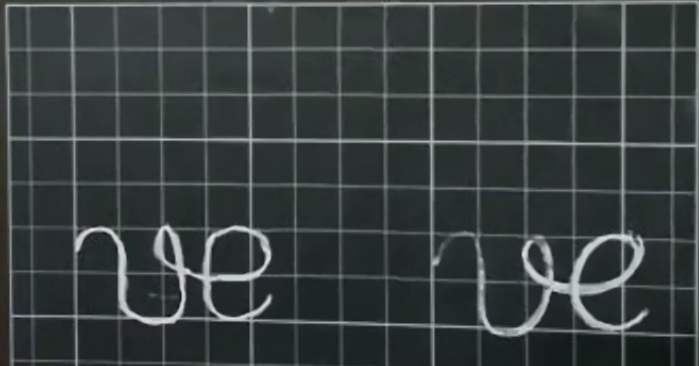 ve ve